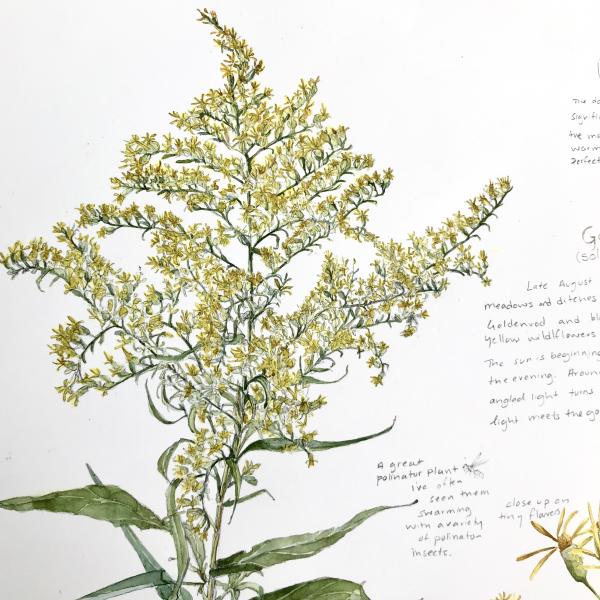 The
signifi
the mo
warm
perfect
Go
(sol
Late August
meadows and ditches
Goldenrod and bl
yellow wildflowers
The sun is beginning
the evening. Aroun
angled light turns
light meets the go
A great
pollinator plant
I've often
seen them
swarming
with a variety
of pollinator
insects.
close up on
tiny flowers